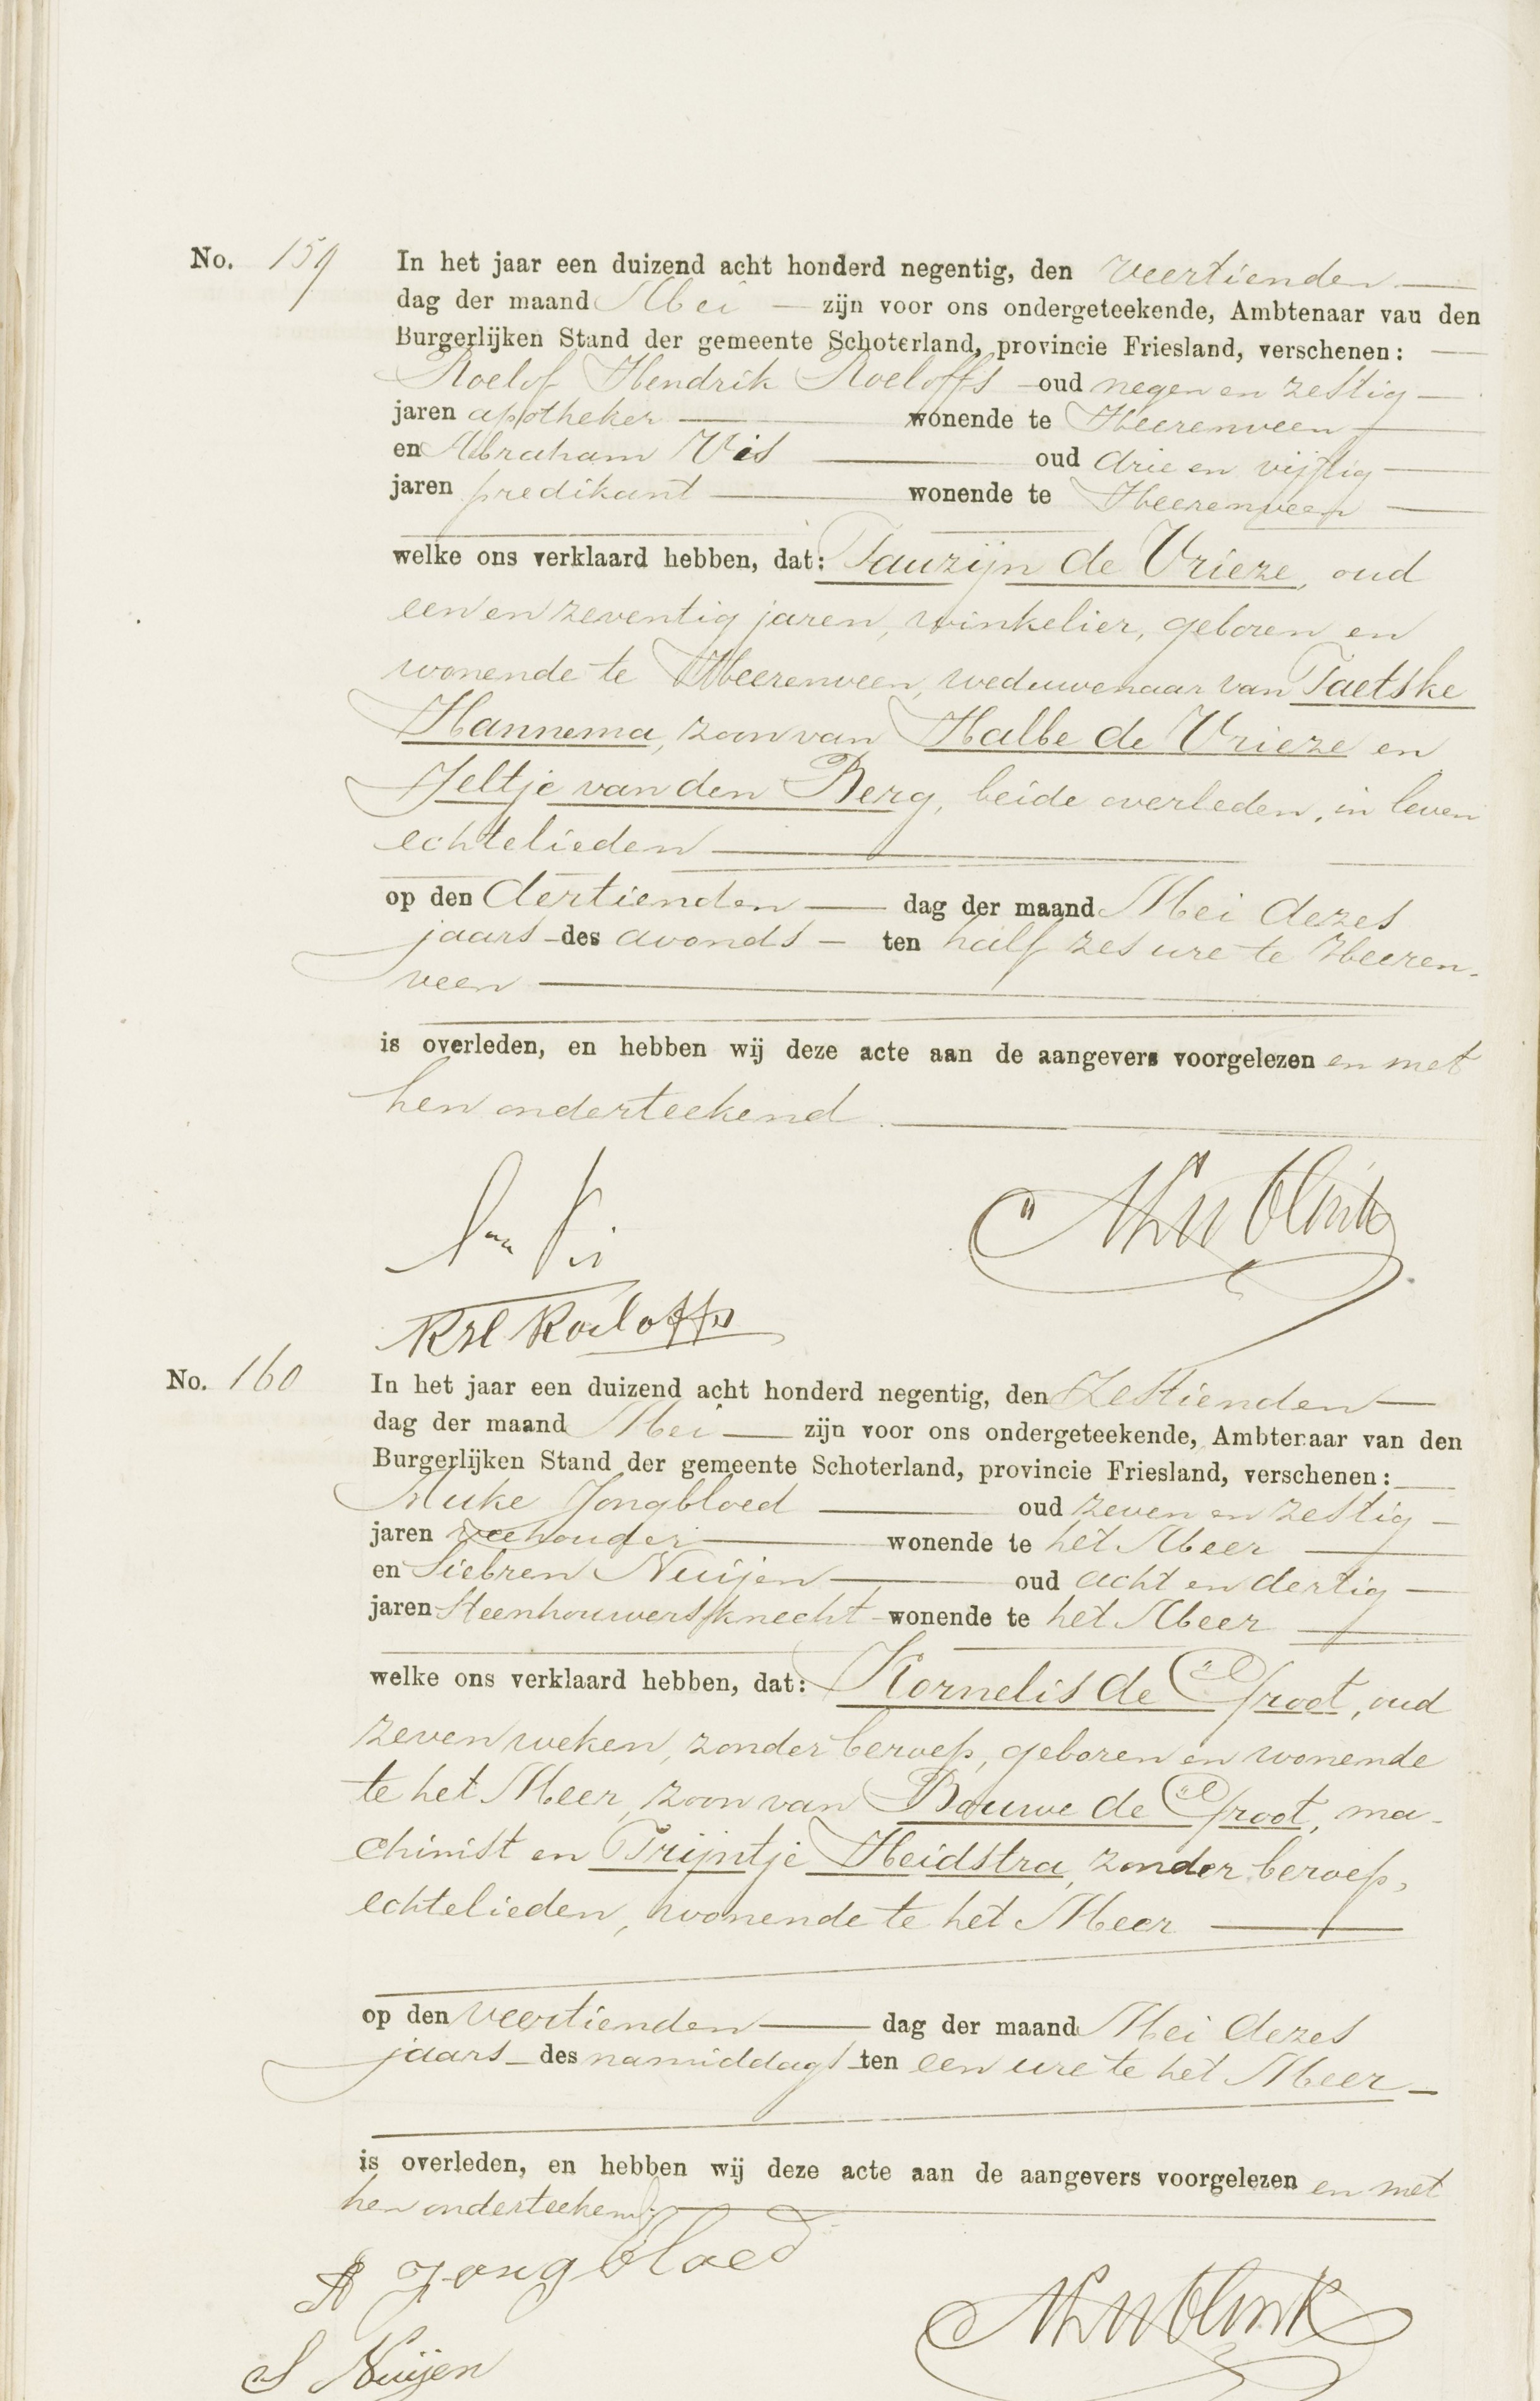 No. 159 In het jaar een duizend acht honderd negentig, den veertienden
dag der maand Mei zijn voor ons ondergeteekende, Ambtenaar vau den
Burgerlijken Stand der gemeente Schoterland, provincie Friesland, verschenen:
Roelof Hendrik Roeloffs oud negen en zestig
jaren apotheker wonende te Heerenveen
en Abraham Vis oud drie en vijftig
jaren predikant wonende te Heerenveen
welke ons verklaard hebben, dat: Tauzijn de Vrieze, oud
een en zeventig jaren, winkelier, geboren en
wonende te Heerenveen, weduwenaar van Taetske
Hannema, zoon van Halbe de Vrieze en
Jeltje van den Berg, beide overleden, in leven
echtelieden
op den dertienden dag der maand Mei dezes
jaars des avonds ten half zes ure te Heeren-
veen
is overleden, en hebben wij deze acte aan de aangevers voorgelezen en met
hen onderteekend.
RH Roeloffs
No. 160 In het jaar een duizend acht honderd negentig, den zestienden
dag der maand Mei zijn voor ons ondergeteekende, Ambtenaar van den
Burgerlijken Stand der gemeente Schoterland, provincie Friesland, verschenen:
Auke Jongbloed oud zeven en zestig
jaren veehouder wonende te het Meer
en Siebren Nuijen oud acht en dertig
jaren steenhouwersknecht wonende te het Meer
welke ons verklaard hebben, dat: Kornelis de Groot, oud
zeven weken, zonder beroep, geboren en wonende
te het Meer, zoon van Bouwe de Groot, ma-
chinist en Trijntje Heidstra, zonder beroep,
echtelieden, wonende te het Meer
op den veertienden dag der maand Mei dezes
jaars des namiddags ten een ure te het Meer
is overleden, en hebben wij deze acte aan de aangevers voorgelezen en met
hen onderteekend.
A Jongbloed
S Nuijen